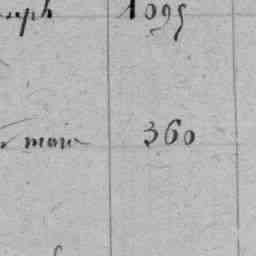 seph 1095
marie 360